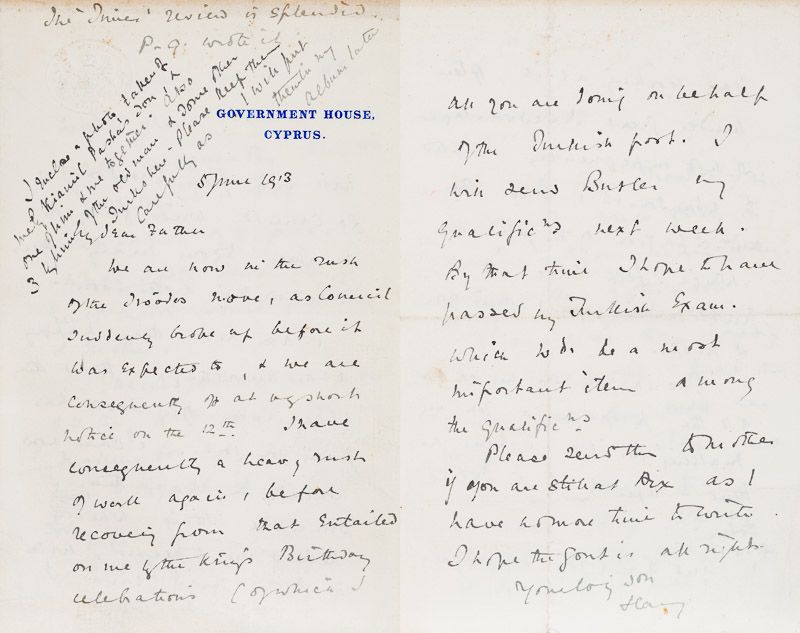 The Times' review is splendid.
P-G. wrote it.
I enclose a photo taken of
me, Kiamil Pasha's son &
one of him & me together. Also
3 of him & the old man & some other
Turks here. Please keep them
carefully as I will put
them in my
album later
GOVERNMENT HOUSE,
CYPRUS.
5 June 1913
My dear Father
We are now in the rush
of the Troödos move, as Council
suddenly broke up before it
was expected to, & we are
consequently off at v. short
notice on the 12th. I have
consequently a heavy rush
of work again, before
recovering from that entailed
on me by the King's Birthday
celebrations (of which I
all you are doing on behalf
of the Turkish post. I
will send Butler my
Qualificns next week.
By that time I hope to have
passed my Turkish Exam.
which wd. be a most
important item among
the qualificns
Please send this to Mother
if you are still at Aix as I
have no more time to write.
I hope the gout is all right.
Your loving son
Harry